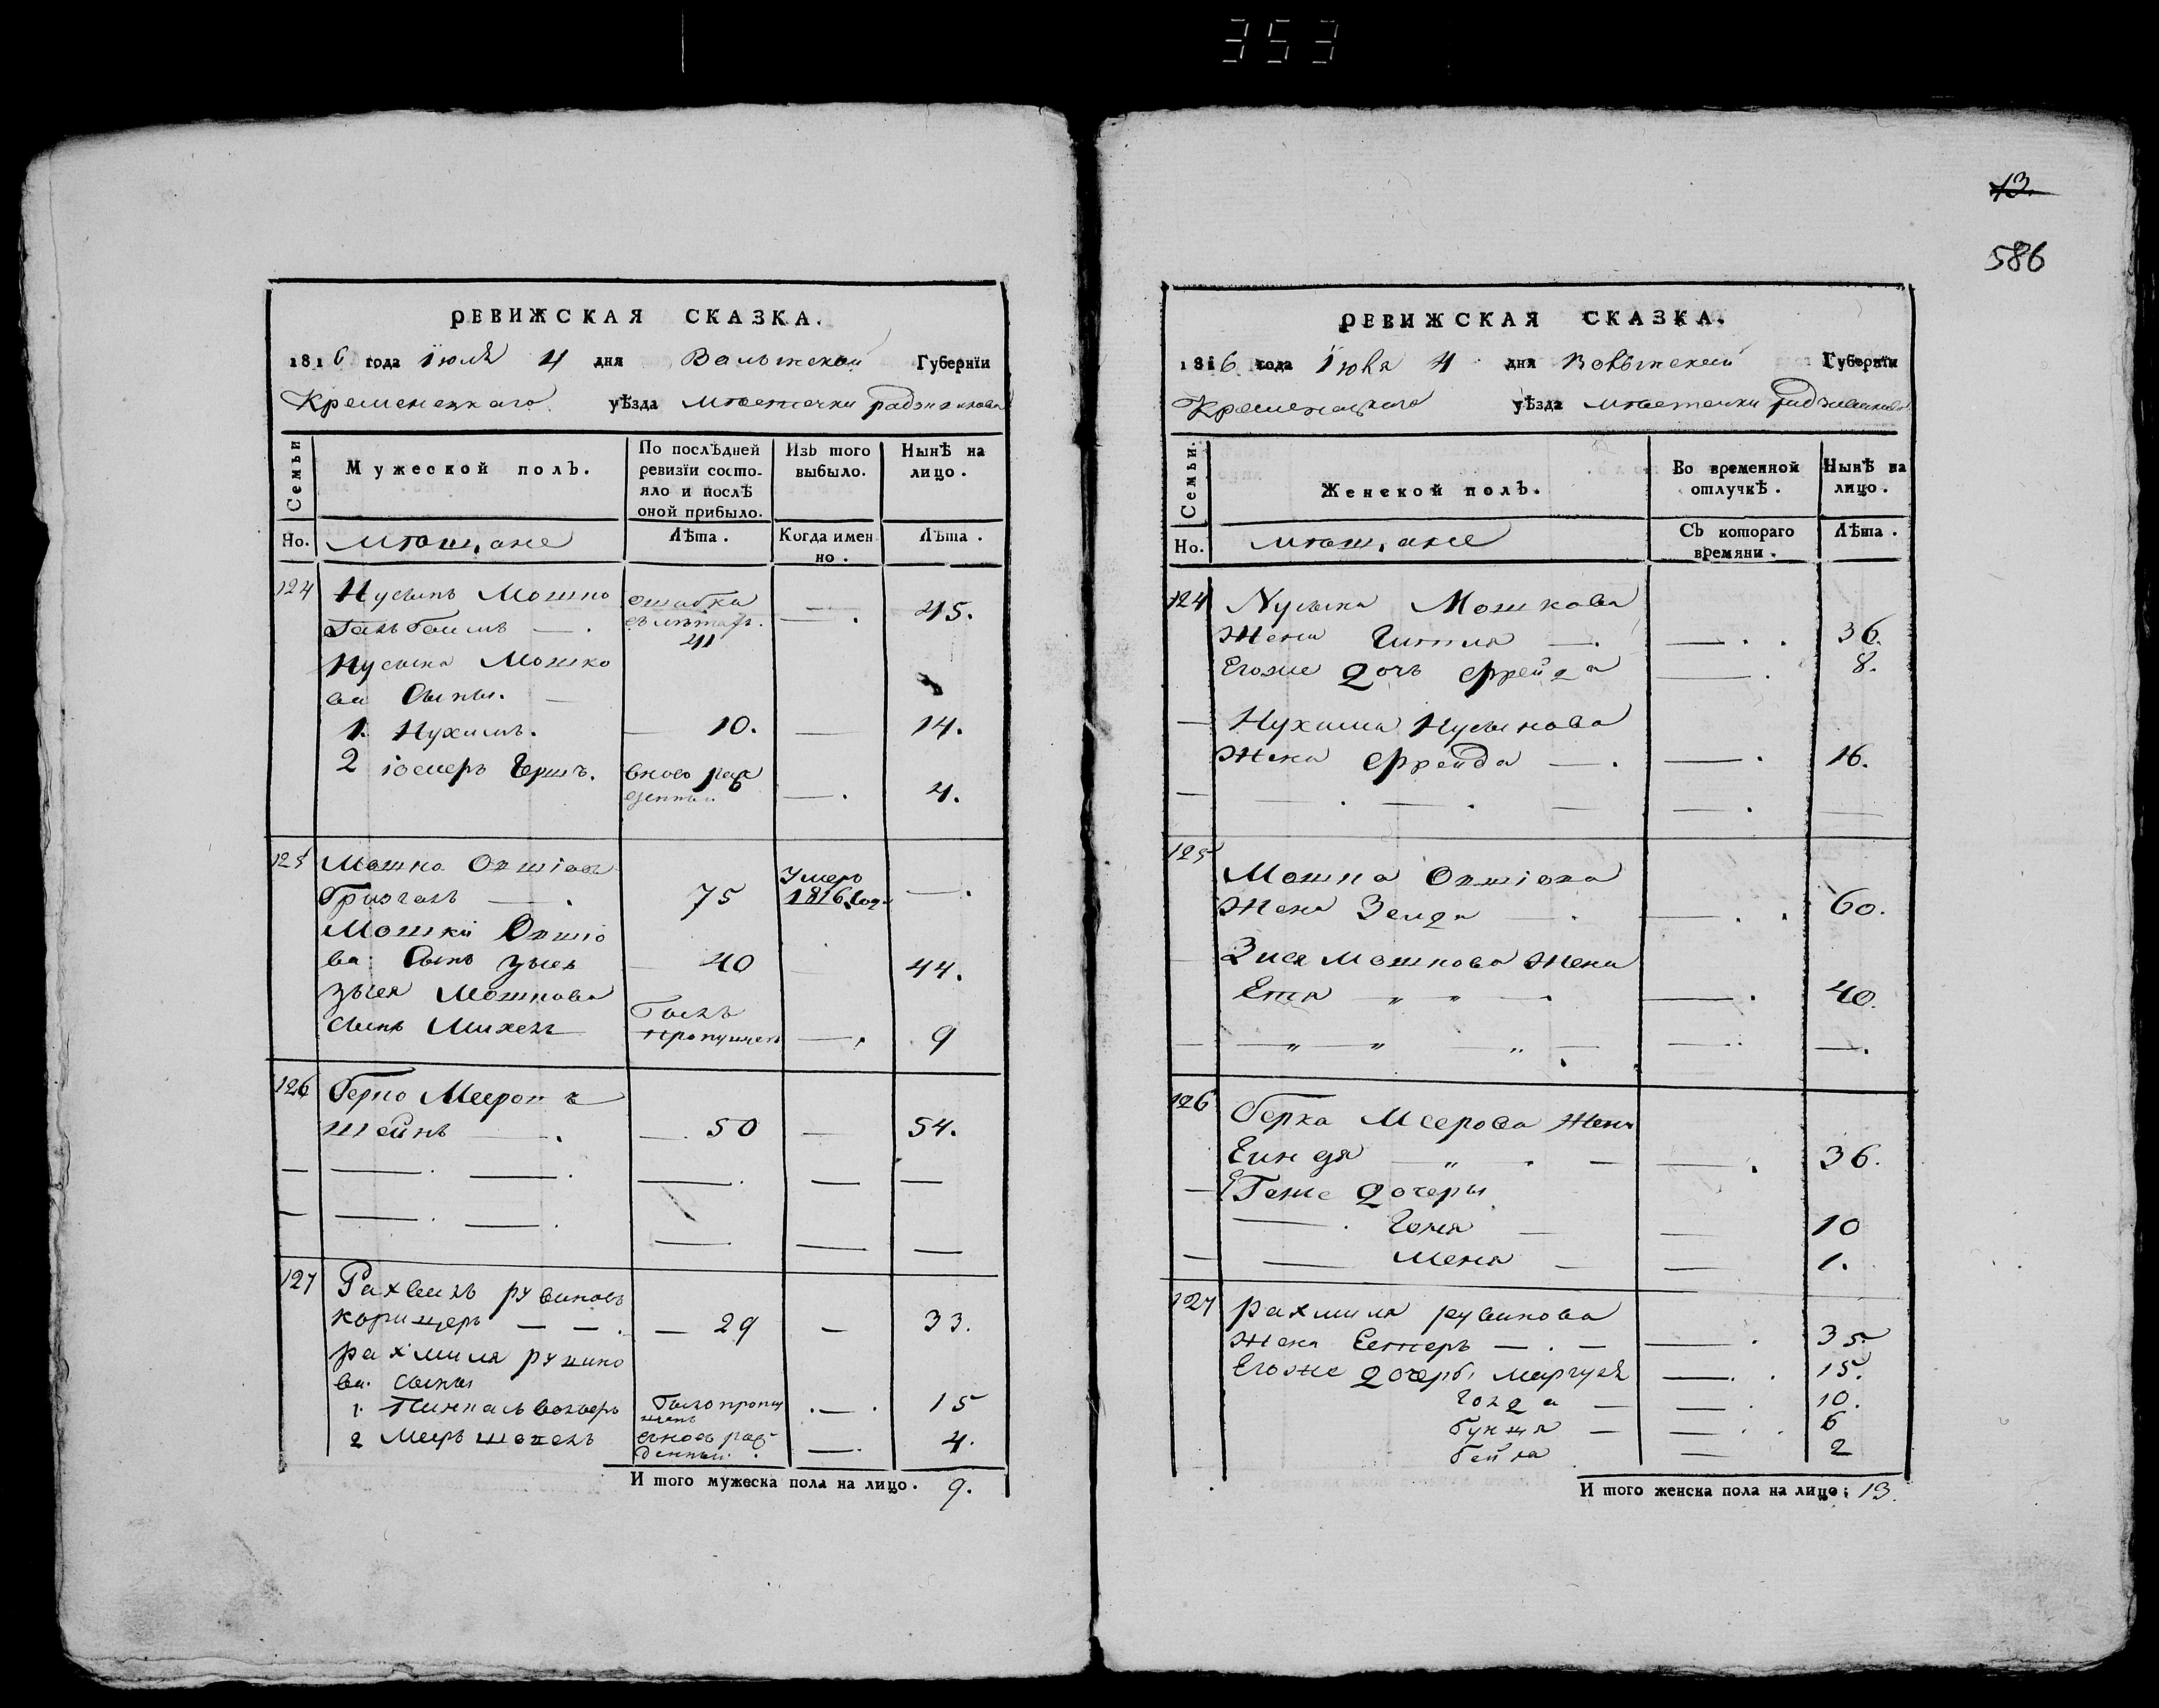 353
13.
586
РЕВИЖСКАЯ СКАЗКА.
1816 года Іюля 4 дня Волынской Губернїи
Кременецкаго уѣзда мѣстечки радзивилова
Семьи
Мужеской полъ.
По послѣдней ревизїи состояло и послѣ оной прибыло.
Изъ того выбыло.
Нынѣ на лицо.
Но. мѣщане
Лѣта.
Когда именно.
Лѣта.
124 Нусынъ Мошко ошибка
въ летахъ. — . 45.
41
Нусына Мошко
ва Сыны. —
1. Нухимъ. — 10. — 14.
2 іосперъ Гершъ. вновь рож
денный — . 4.
125 Мошко Опшіовъ Умеръ
— . 75 1816 год — .
Мошки Опшіо
ва Сынъ зысь — 40 — 44.
зыся Мошкова Былъ
Сынъ Михель пропущен — . 9
126 Берко Мееровъ
штейнъ — . — 50 — 54.
127 Рахмиль рувиновъ
— — . — 29 — 33.
рахмиля рувино
ва сыны
1. Пинкасъ вольверъ Было пропу
щенъ . — . 15
2 Меер вновь рож
денный. — . 4.
И того мужеска пола на лицо. 9.
РЕВИЖСКАЯ СКАЗКА.
1816 года Іюля 4 дня Волынской Губернїи
Кременецкаго уѣзда мѣстечки радзивилова
Семьи.
Женской полъ.
Во временной отлучкѣ.
Нынѣ на лицо.
Но. мѣщане
Съ котораго времяни.
Лѣта.
124 Нусына Мошкова
Жена Гитля — . — . . 36.
Егоже дочь Фрейда — . 8.
— Нухима Нусынова
Жена Фрейда — . — . 16.
125 Мошка Опшіова
Жена Зелда — . — . . 60.
Зися Мошкова Жена
Етя — „ „ — . — . 40.
126 Берка Меерова Жена
Еиндя — „ . — — . 36.
— Егоже дочеры
— . Геня — — 10
— — Меня — — 1.
127 рахмиля рувинова
Жена Естеръ — . — — . 35.
Егоже дочеры Миргуля — . . 15.
Голда — — . 10.
Бунця — — . . 6
Бейла — 2
И того женска пола на лицо: 13.